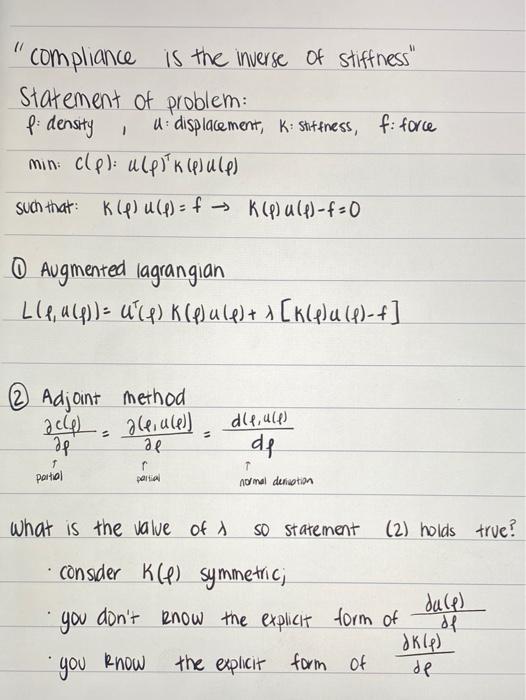 "compliance is the inverse of stiffness"
Statement of problem:
ρ: density , u: displacement, K: stiffness, f: force
min: c(ρ): u(ρ)ᵀK(ρ)u(ρ)
such that: K(ρ)u(ρ)=f → K(ρ)u(ρ)-f=0
① Augmented lagrangian
L(ρ,u(ρ))= uᵀ(ρ) K(ρ)u(ρ)+ λ[K(ρ)u(ρ)-f]
② Adjoint method
∂c(ρ)/∂ρ = ∂(ρ,u(ρ))/∂ρ = d(ρ,u(ρ))/dρ
↑ ↑ ↑
partial partial normal derivation
What is the value of λ so statement (2) holds true?
· consider K(ρ) symmetric;
· you don't know the explicit form of ∂u(ρ)/∂ρ
· you know the explicit form of ∂K(ρ)/∂ρ